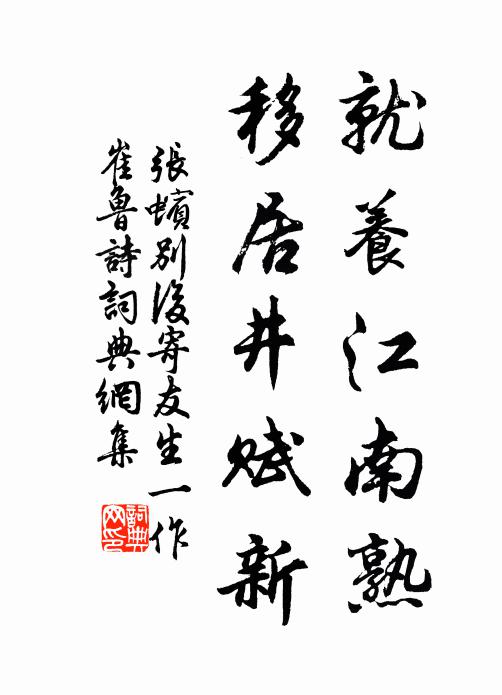 就養江南熟
移居井賦新
張蠙別後寄友生一作
崔魯詩詞典網集
詞典网印